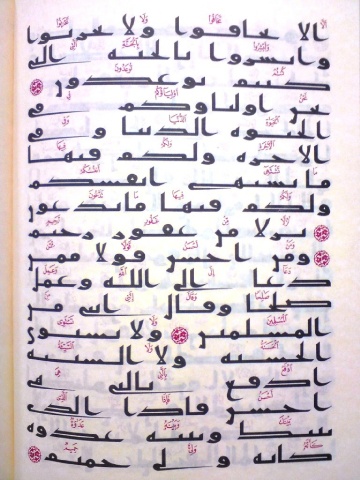 الا تخافوا ولا تحزنوا
وابشروا بالجنة التي
كنتم توعدون ۝
نحن اولياؤكم في
الحيوة الدنيا و في
الاخرة ولكم فيها
ما تشتهي انفسكم
ولكم فيها ما تدعون
نزلا من غفور رحيم
۝ ومن احسن قولا ممن
دعا الى الله وعمل
صلحا وقال انني من
المسلمين ۝ ولا تستوي
الحسنة ولا السيئة
ادفع بالتي هي
احسن فاذا الذي
بينك وبينه عدوة
كانه ولي حميم ۝